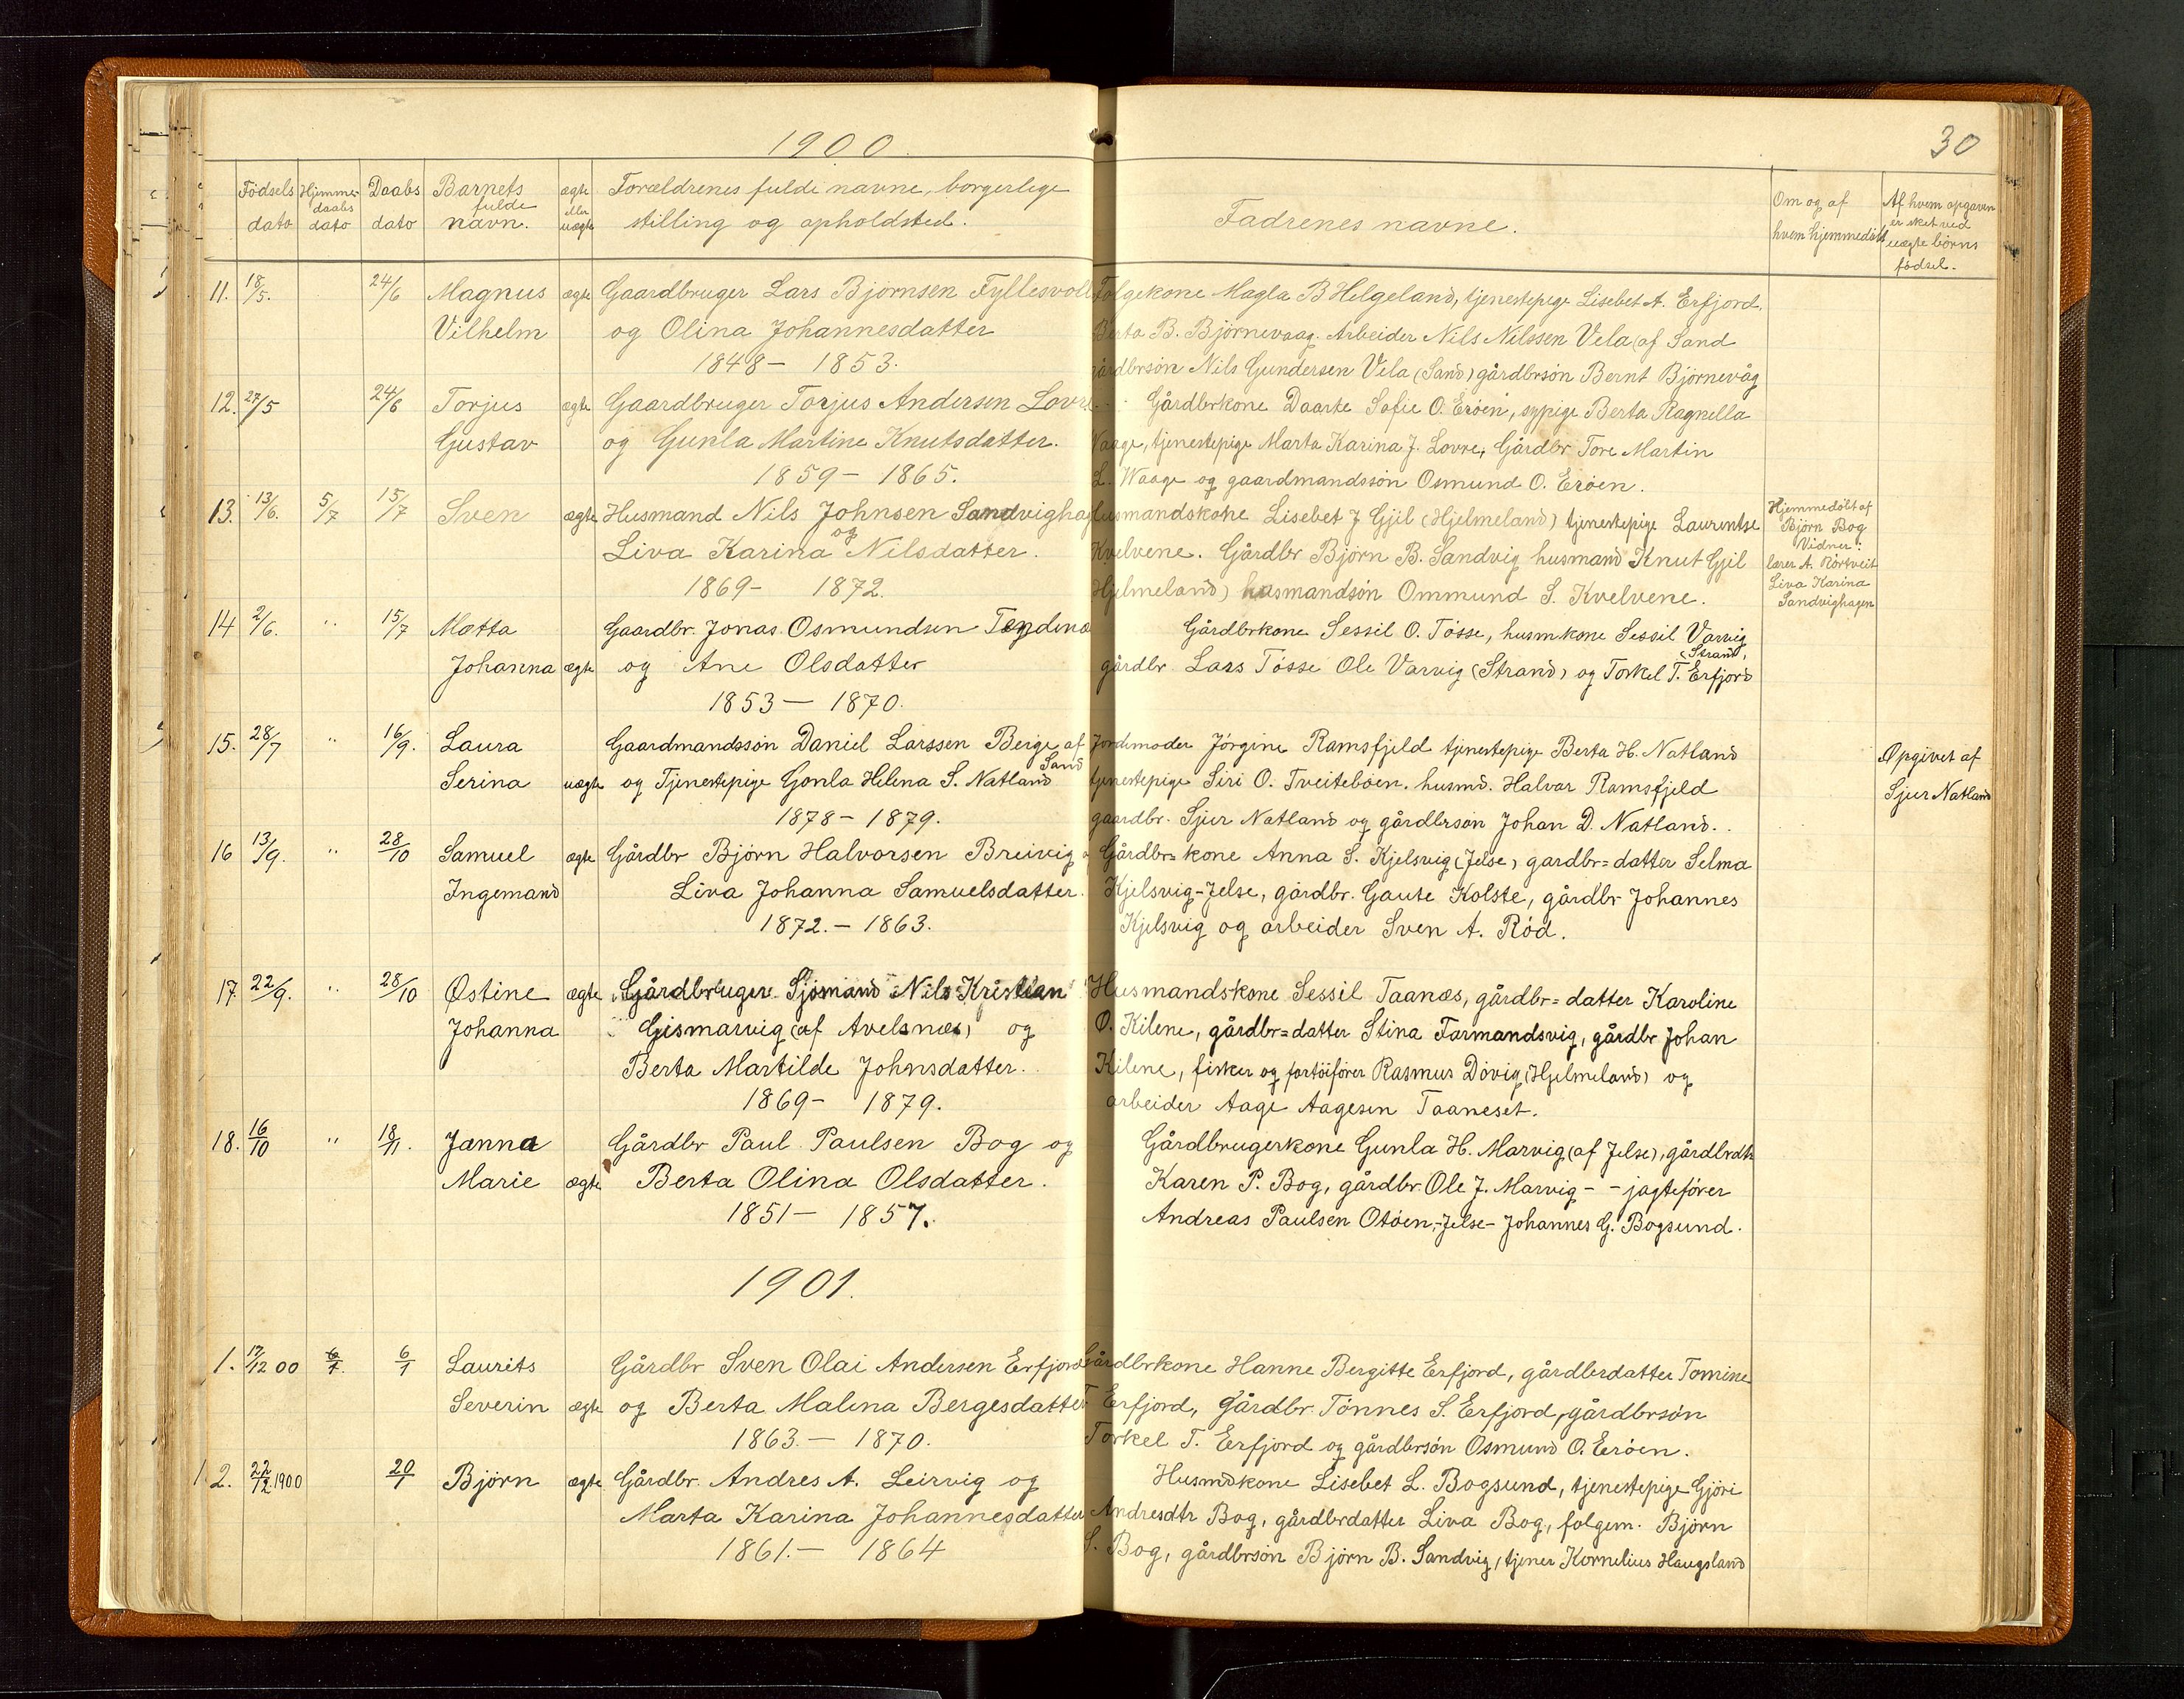 1900.
30
Fødsels dato
Hjemme-daabs dato
Daabs dato
Barnets fulde navn.
ægte eller uægte
Forældrenes fulde navne, borgerlige stilling og opholdsted.
Fadrenes navne.
Om og af hvem hjemmedøbt
Af hvem opgaven er sket ved uægte børns fødsel.
11. 18/5. 24/6 Magnus ægte Gaardbruger Lars Bjørnsen Fyllesvoll Følgekone Magla B Helgeland, tjenestepige Lisebet A. Erfjord.
Vilhelm og Olina Johannesdatter Berta B. Bjørnevaag. Arbeider Nils Nilssen Vela (af Sand
1848 - 1853. gårdbrsøn Nils Gundersen Vela (Sand) gårdbrsøn Bernt Bjørnevåg
12. 27/5 24/6 Torjus ægte Gaardbruger Torjus Andersen Lovre Gårdbrkone Daarte Sofie O. Erøen, sypige Berta Ragnella
Gustav og Gunla Martine Knutsdatter. Waage, tjenestepige Marta Karina J. Lovre, Gårdbr Tore Martin
1859 - 1865. L. Waage og gaardmandssøn Osmund O. Erøen.
13. 13/6. 5/7 15/7 Sven ægte Husmand Nils Johnsen Sandvighag Husmandskone Lisebet J Gjil (Hjelmeland) tjenestepige Laurentse
og
Liva Karina Nilsdatter. Kvelvene. Gårdbr Bjørn B. Sandvig husmand Knut Gjil
1869 - 1872. Hjelmeland) husmandsøn Ommund S. Kvelvene.
Hjemmedøbt af
Bjørn Bog
Vidner:
lærer A. Rörtveit
Liva Karina
Sandvighagen
14 2/6. " 15/7 Matta Gaardbr. Jonas Osmundsen Gårdbrkone Sessil O. Tøsse, husmkone Sessil Varvig
(Strand,
Johanna ægte og Ane Olsdatter gårdbr Lars Tøsse Ole Varvig (Strand) og Torkel T. Erfjord
1853 - 1870.
15. 28/7 " 16/9. Laura Gaardmandssøn Daniel Larssen Berge af Jordemoder Jørgine Ramsfjeld tjenestepige Berta H. Natland
Sand
Serina uægte og Tjenestepige Gonla Helena S. Natland tjenestepige Siri O. Tveitebøen. husmd. Halvar Ramsfjeld
1878 - 1879. gaardbr. Sjur Natland og gårdbrsøn Johan D. Natland.
Opgivet af
Sjur Natland
16 13/9. " 28/10 Samuel ægte Gårdbr Bjørn Halvorsen Breivig o Gårdbr=kone Anna S. Kjelsvig (Jelse) gardbr=datter Selma
Ingemand Liva Johanna Samuelsdatter. Kjelsvig-Jelse, gårdbr. Gaute Kolste, gårdbr Johannes
1872. - 1863. Kjelsvig og arbeider Sven A. Röd.
17. 22/9. " 28/10 Østine ægte Gårdbruger Sjømand Nils Kristian Husmandskone Sessil Taanæs, gårdbr=datter Karoline
Johanna Gismarvig (af Avelsnæs) og O. Kilene, gårdbr=datter Stina Tarmandsvig, gårdbr Johan
Berta Martilde Johnsdatter. Kilene, fisker og fartøifører Rasmus Døvig (Hjelmeland) og
1869 - 1879. arbeider Aage Aagesen Taaneset.
18. 16/10 " 18/11. Janna Gårdbr Paul Paulsen Bog og Gårdbrugerkone Gunla H. Marvig (af Jelse), gårdbrdtr
Marie ægte Berta Olina Olsdatter. Karen P. Bog, gårdbr Ole J. Marvig - - jagtefører
1851 - 1857. Andreas Paulsen Otøen,-Jelse- Johannes G. Bogsund.
1901.
1. 17/12 00 6/1. 6/1 Laurits Gårdbr Sven Olai Andersen Erfjord Gårdbrkone Hanne Bergitte Erfjord, gårdbrdatter Tomine
Severin ægte og Berta Malena Bergesdatter T Erfjord, gårdbr. Tönnes S. Erfjord, gårdbrsøn
1863. - 1870. Torkel T. Erfjord og gårdbrsøn Osmund O. Erøen.
2. 22/12.1900 20/1 Bjørn ægte Gårdbr. Andres A. Leirvig og Husmdkone Lisebet L. Bogsund, tjenestepige Gjøri
Marta Karina Johannesdatter Andresdtr Bog, gårdbrdatter Liva Bog, følgem. Bjørn
1861. - 1864 S. Bog, gårdbrsøn Bjørn B. Sandvig, tjener Kornelius Haugsland